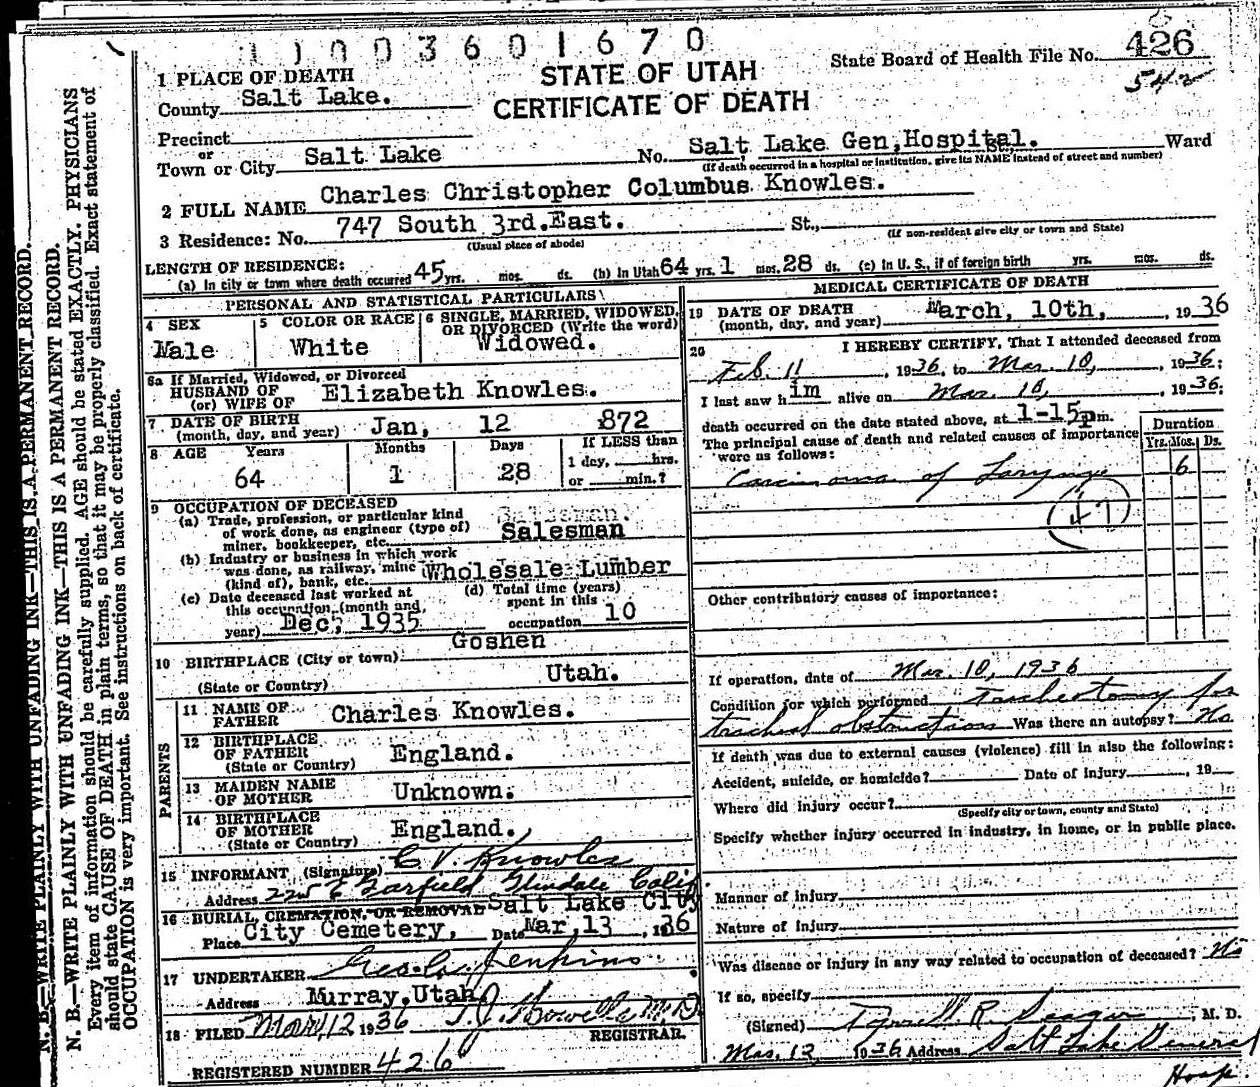 11003601670
State Board of Health File No. 426
542
STATE OF UTAH
CERTIFICATE OF DEATH
1 PLACE OF DEATH
County Salt Lake.
Precinct
or
Town or City Salt Lake No. Salt Lake Gen, Hospital. Ward
(If death occurred in a hospital or institution, give its NAME instead of street and number)
2 FULL NAME Charles Christopher Columbus Knowles.
3 Residence: No. 747 South 3rd. East. St.,
(Usual place of abode) (If non-resident give city or town and State)
LENGTH OF RESIDENCE:
(a) In city or town where death occurred 45 yrs. mos. ds. (b) In Utah 64 yrs. 1 mos. 28 ds. (c) In U. S., if of foreign birth yrs. mos. ds.
PERSONAL AND STATISTICAL PARTICULARS
4 SEX
Male
5 COLOR OR RACE
White
6 SINGLE, MARRIED, WIDOWED,
OR DIVORCED (Write the word)
Widowed.
6a If Married, Widowed, or Divorced
HUSBAND OF
(or) WIFE OF Elizabeth Knowles.
7 DATE OF BIRTH
(month, day, and year) Jan, 12 872
8 AGE Years Months Days If LESS than
64 1 28 1 day, hrs.
or min.?
9 OCCUPATION OF DECEASED
(a) Trade, profession, or particular kind
of work done, as engineer (type of)
miner, bookkeeper, etc. Salesman
(b) Industry or business in which work
was done, as railway, mine
(kind of), bank, etc. Wholesale Lumber
(c) Date deceased last worked at
this occupation (month and
year) Dec, 1935
(d) Total time (years)
spent in this
occupation 10
10 BIRTHPLACE (City or town) Goshen
(State or Country) Utah.
PARENTS
11 NAME OF
FATHER Charles Knowles.
12 BIRTHPLACE
OF FATHER England.
(State or Country)
13 MAIDEN NAME
OF MOTHER Unknown.
14 BIRTHPLACE
OF MOTHER England.
(State or Country)
15 INFORMANT (Signature) C V. Knowles
Address E Garfield Glendale Calif
16 BURIAL, CREMATION, OR REMOVAL Salt Lake City
Place City Cemetery, Date Mar, 13, 1936
17 UNDERTAKER Jenkins
Address Murray, Utah
18 FILED 12 1936 M.D.
REGISTRAR.
REGISTERED NUMBER 426
MEDICAL CERTIFICATE OF DEATH
19 DATE OF DEATH
(month, day, and year) March, 10th, , 1936
20 I HEREBY CERTIFY, That I attended deceased from
Feb. 11, 1936, to Mar. 10, , 1936;
I last saw h im alive on Mar. 10, , 1936;
death occurred on the date stated above, at 1-15p m.
The principal cause of death and related causes of importance
were as follows:
Duration
Yrs. Mos. Ds.
Carcinoma of Larynx 6
47
Other contributory causes of importance:
If operation, date of Mar. 10, 1936
Condition for which performed Tracheotomy for
tracheal obstruction Was there an autopsy? No
If death was due to external causes (violence) fill in also the following:
Accident, suicide, or homicide? Date of injury , 19
Where did injury occur?
(Specify city or town, county and State)
Specify whether injury occurred in industry, in home, or in public place.
Manner of injury
Nature of injury
Was disease or injury in any way related to occupation of deceased? No
If so, specify
(Signed) Tyrrell R. Seager, M. D.
Mar. 12 1936 Address Salt Lake General
Hosp.
N. B.—WRITE PLAINLY WITH UNFADING INK—THIS IS A PERMANENT RECORD.
N. B.—WRITE PLAINLY WITH UNFADING INK—THIS IS A PERMANENT RECORD.
Every item of information should be carefully supplied. AGE should be stated EXACTLY. PHYSICIANS
should state CAUSE OF DEATH in plain terms, so that it may be properly classified. Exact statement of
OCCUPATION is very important. See instructions on back of certificate.